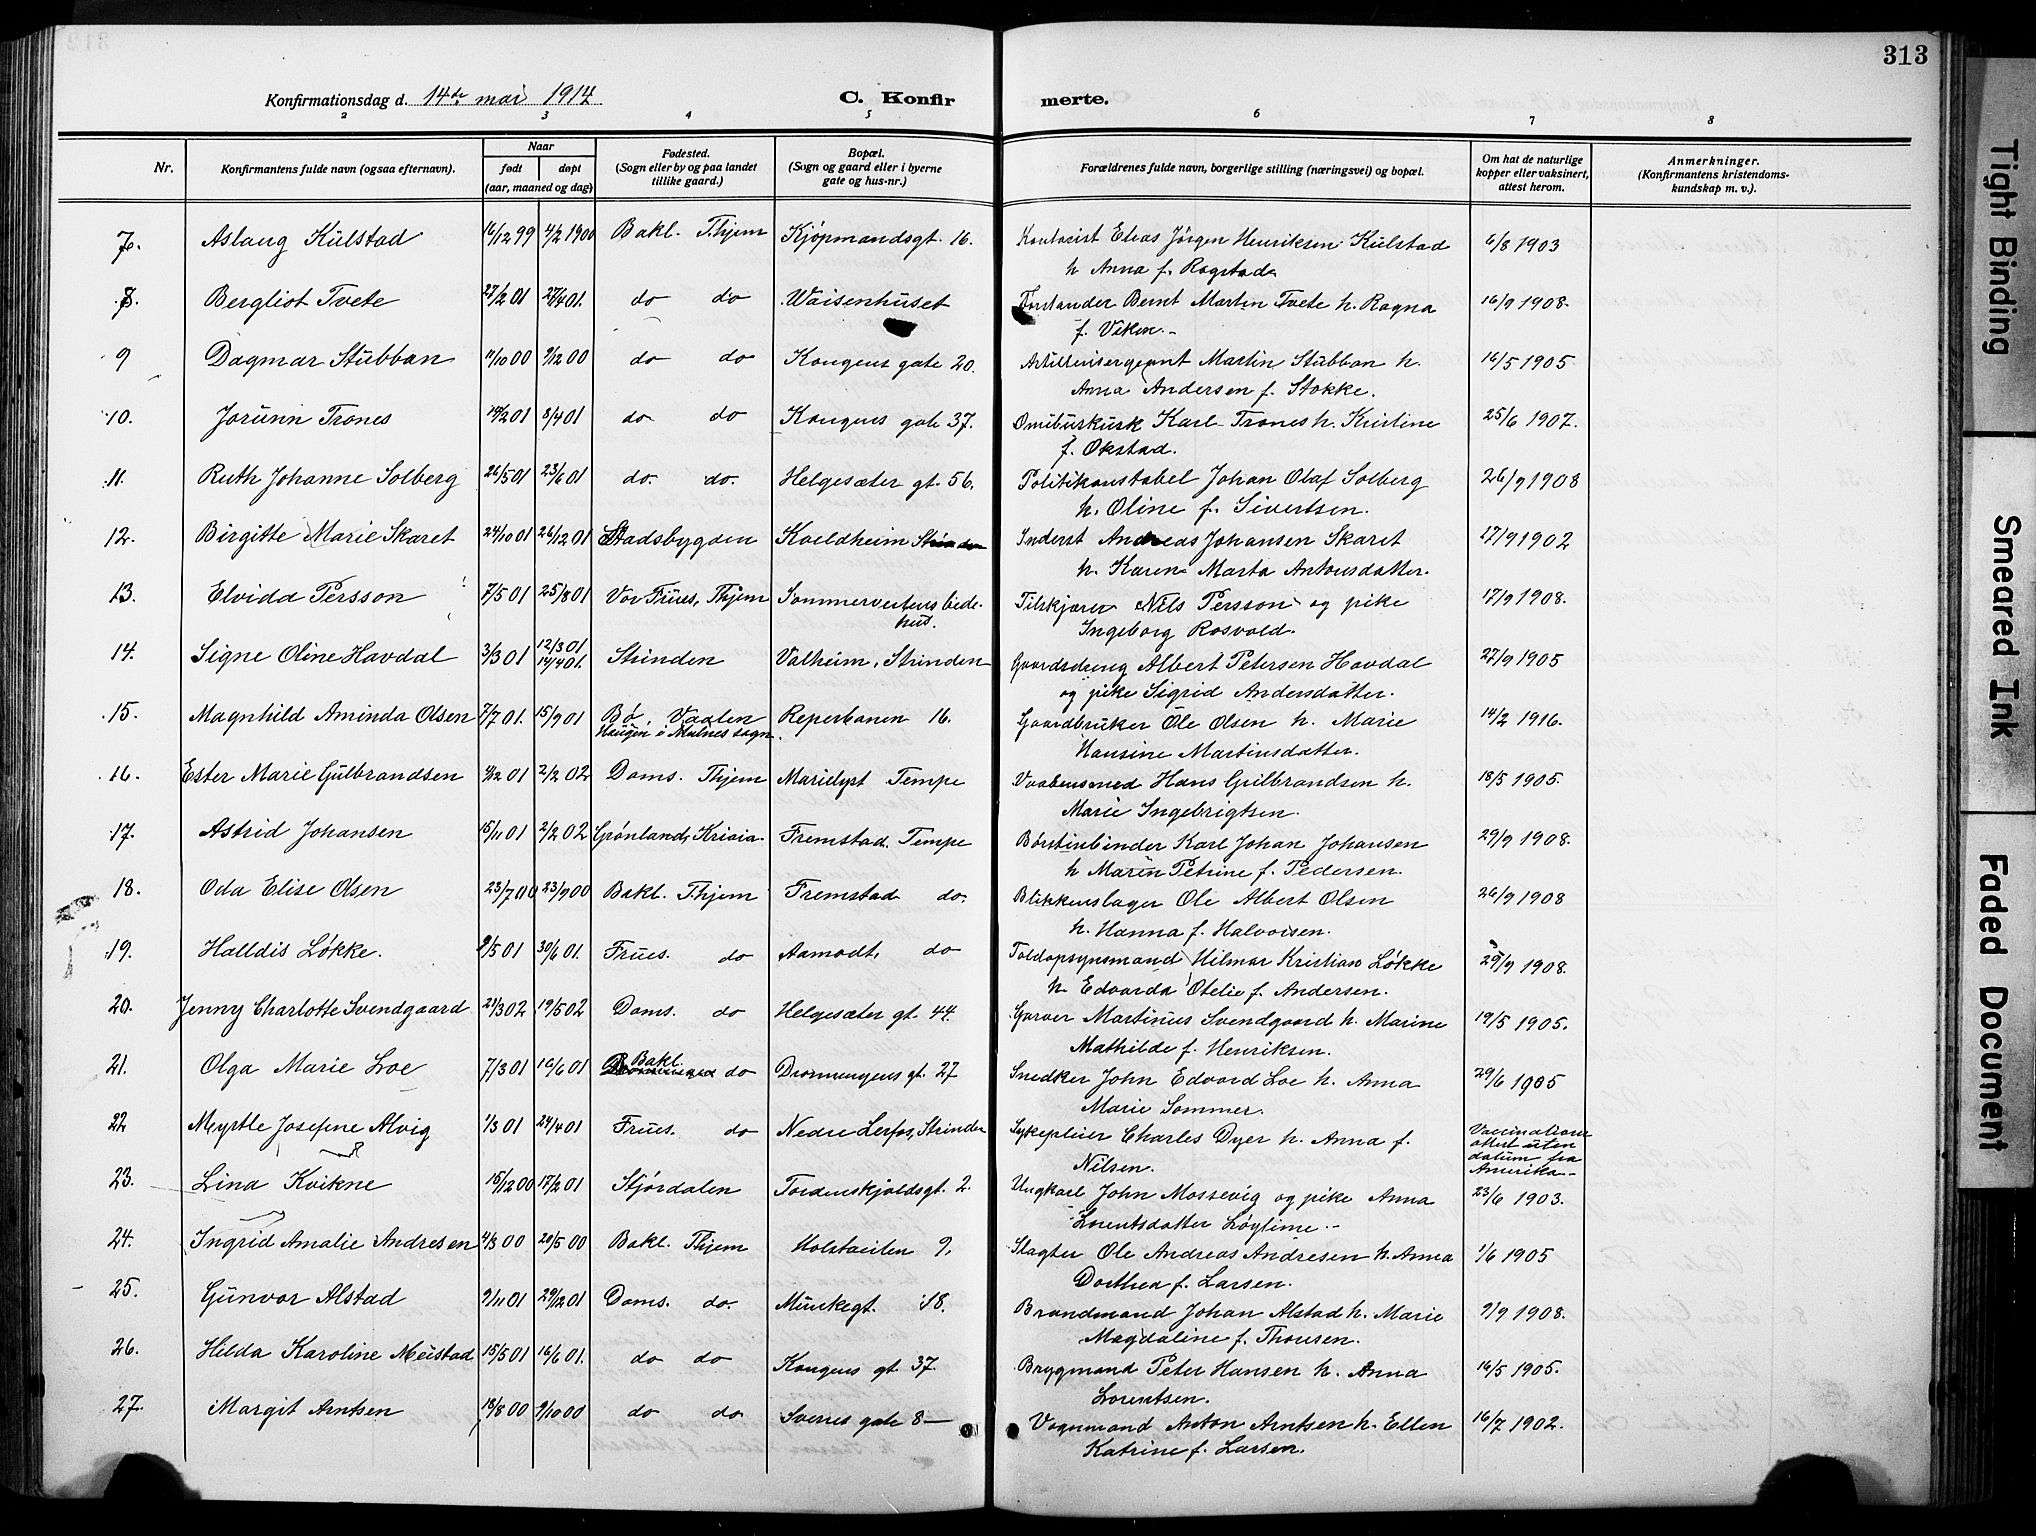 313
Konfirmationsdag d. 14de mai 1914 C. Konfirmerte.
2 3 4 5 6 7 8
Nr. Konfirmantens fulde navn (ogsaa efternavn). Naar født døpt (aar, maaned og dag) Fødested. (Sogn eller by og paa landet tillike gaard.) Bopæl. (Sogn og gaard eller i byerne gate og hus-nr.) Forældrenes fulde navn, borgerlige stilling (næringsvei) og bopæl. Om hat de naturlige kopper eller vaksinert, attest herom. Anmerkninger. (Konfirmantens kristendomskundskap m. v.).
7. Aslaug Kulstad 16/12 99 4/2 1900 Bakl. Thjem Kjøpmandsgt. 16. Kontorist Elias Jørgen Henriksen Kulstad 6/8 1903
h. Anna f. Rogstad
8. Bergliot Tvete 27/2 01 27/4 01. do do Waisenhuset Forstander Bernt Martin Tvete h. Ragna 16/9 1908.
f. Viken.
9 Dagmar Stubban 11/10 00 9/12 00 do do Kongens gate 20. Artillerisergeant Martin Stubban h. 16/5 1905.
Anna Andersen f. Stokke.
10. Jorunn Trones 14/2 01 8/4 01 do do Kongens gate 37. Omibuskusk Karl Trones h. Kristine 25/6 1907.
f. Okstad.
11. Ruth Johanne Solberg 26/5 01 23/6 01 do. do. Helgesæter gt. 56. Politikonstabel Johan Olaf Solberg 26/9 1908
h. Oline f. Sivertsen.
12. Birgitte Marie Skaret 24/10 01 26/12 01 Stadsbygden Kveldheim Strinden Inderst Andreas Johansen Skaret 17/9 1902
h. Karen Marta Antonsdatter.
13. Elvida Persson 7/5 01 25/8 01 Vor Frues, Thjem Sommervertens bede- Nils Persson og pike 17/9 1908.
hus. Ingeborg Rosvold.
14. Signe Oline Havdal 3/3 01 12/3 01
14/4 01. Strinden Valheim, Strinden Gaardsdreng Albert Petersen Havdal 27/9 1905
og pike Sigrid Andersdatter.
15. Magnhild Aminda Olsen 7/7 01. 15/9 01 Bø, Vaalen Reperbanen 16. Gaardbruker Ole Olsen h. Marie 14/2 1916.
Haugen i Malnes sogn. Hansine Martinusdatter.
16. Ester Marie Gulbrandsen 4/12 01 2/2 02 Doms. Thjem Marielyst Tempe Vaabensmed Hans Gulbrandsen h. 18/5 1905.
Marie Ingebrigtsen.
17. Astrid Johansen 15/11 01 2/2 02 Grønland, Kr.ania. Fremstad. Tempe Børstenbinder Karl Johan Johansen 29/9 1908.
h Maren Petrine f. Pedersen.
18. Oda Elise Olsen 23/7 00 23/9 00 Bakl. Thjem Fremstad do. Blikkenslager Ole Albert Olsen 26/9 1908
h. Hanna f. Halvorsen.
19. Halldis Løkke. 9/5 01 30/6 01. Frues. do Aamodt, do Toldopsynsmand Hilmar Kristian Løkke 29/9 1908.
h. Edvarda Otelie f. Andersen.
20. Jenny Charlotte Svendgaard 21/3 02 19/5 02 Doms. do Helgesæter gt. 44. Garver Martinus Svendgaard h. Marine 19/5 1905.
Mathilde f. Henriksen.
21. Olga Marie Loe 7/3 01 16/6 01 Bakl. do Dronningens gt. 27 Snedker John Edvard Loe h. Anna 29/6 1905
Marie Sommer.
22 Myrtle Josefine Alvig 1/3 01 24/4 01 Frues. do Nedre Lerfos, Strinden Sykepleier Charles Dyer h. Anna f. Vaccinations
Nilsen. attest uten
datum fra
Amerika.
23. Lina Kvikne 15/12 00 17/2 01 Stjørdalen Tordenskjoldsgt. 2. Ungkarl John Mossevig og pike Anna 23/6 1903.
Lorentsdatter Løylime.
24. Ingrid Amalie Andresen 4/3 00 20/5 00 Bakl. Thjem Holstveiten 9. Slagter Ole Andreas Andresen h. Anna 1/6 1905
Dorthea f. Larsen.
25. Gunvor Alstad 9/11 01 29/12 01 Doms. do. Munkegt. 18. Brandmand Johan Alstad h. Marie 9/9 1908.
Magdaline f. Thonsen.
26. Hilda Karoline Meistad 15/5 01 16/6 01. do do Kongens gt. 37 Brygmand Peter Hansen h. Anna 16/5 1905.
Lorentsen.
27. Margit Arntsen 18/8 00 9/10 00 do do Sverres gate 8 Vognmand Anton Arntsen h. Ellen 16/7 1902.
Katrine f. Larsen.
Tight Binding
Smeared Ink
Faded Document